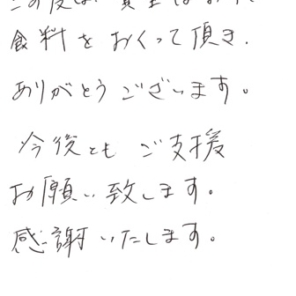 食料をおくって頂き、
ありがとうございます。
今後とも ご支援
お願い致します。
感謝いたします。